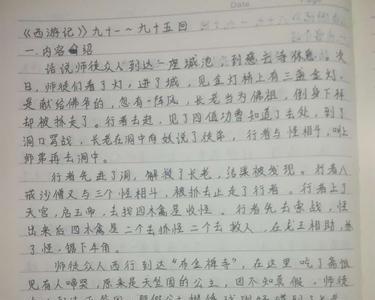 Date
《西游记》九十一～九十五回
一.内容介绍
话说师徒众人到达一座城池,到慈云寺休息。次
日,师徒们看了灯,进了城,见金灯桥上有三盏金灯,
是献给佛爷的,忽有一阵风,长老当为佛祖,倒身下拜
却被抹去了。行者去赶,见了四值功曹知道了去处,到了
洞口骂战,长老在洞中向妖说了往年,行者与怪相斗,叫上
师弟再去洞中。
行者先进了洞,解救了长老,结果被发现。行者八
戒沙僧又与三个怪相斗,被抓去止走了行者。行者上了
天宫,启玉帝,去找四木禽星收怪。行者先去索战,怪
出来后四木禽星二个去抓怪二个去救人,在龙王相助,
了怪,锯下牛角。
师徒众人西行到达“布金禅寺”,在这里吃了斋饭
见有人啼哭,原来是天竺国的公主,因不知真假,师徒